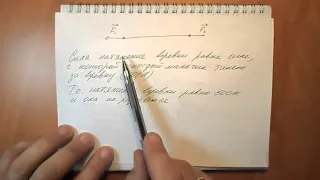 F₁ F₂
Сила натяжения веревки равна силе,
с которой каждый мальчик тянет
за веревку
Т.е. натяжение веревки равно 500Н
и она не разорвется